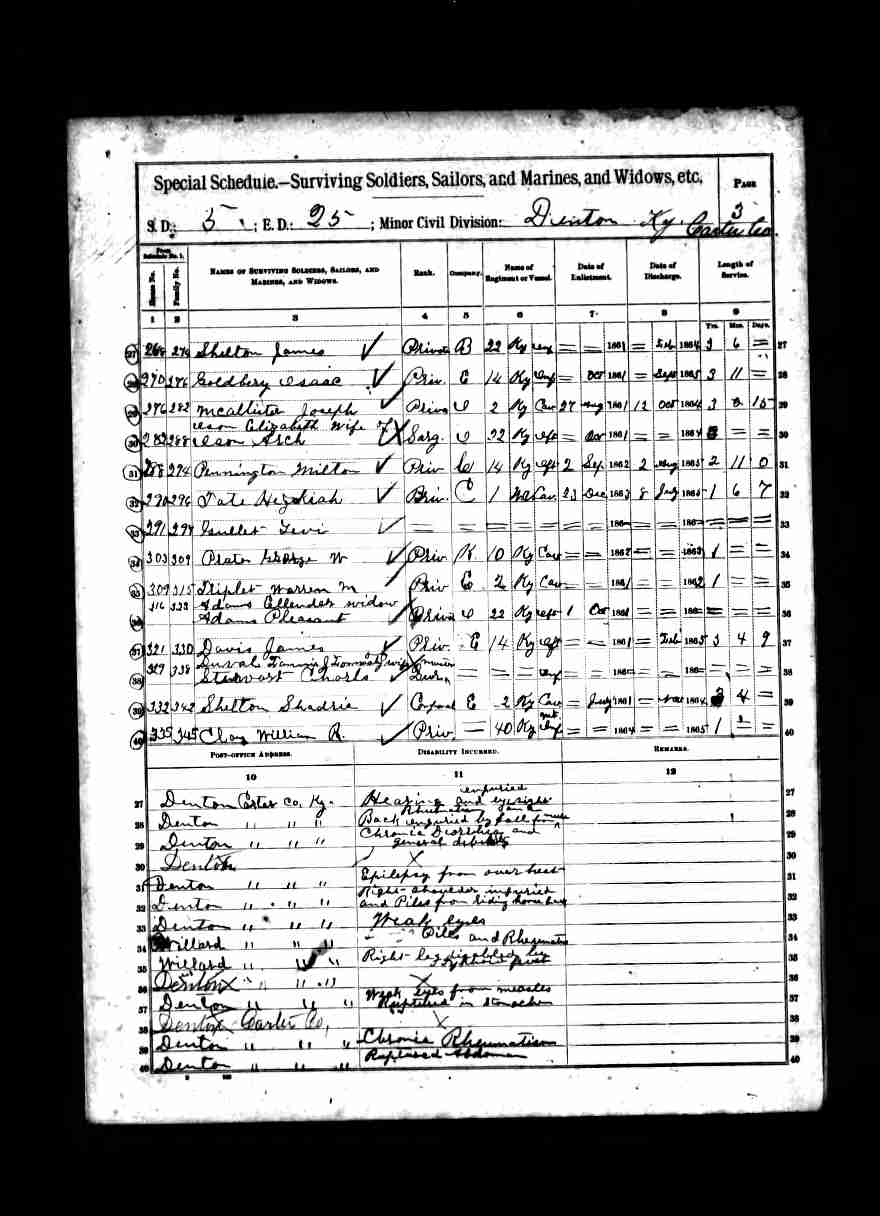 Special Schedule.—Surviving Soldiers, Sailors, and Marines, and Widows, etc.
Page 3
S. D.: 5 ; E. D.: 25 ; Minor Civil Division: Denton Ky. Carter Co.
From Schedule No. 1.
House No. Family No. Names of Surviving Soldiers, Sailors, and Marines, and Widows. Rank. Company. Name of Regiment or Vessel. Date of Enlistment. Date of Discharge. Length of Service.
1 2 3 4 5 6 7 8 9
Yrs. Mos. Days.
27 268 274 Shelton James Private B 22 Ky Inf = = 1861 = Feb 1864 3 6 = 27
28 270 276 Goldbery Isaac Priv. E 14 Ky Inf = Oct 1861 = Sept 1865 3 11 = 28
29 276 282 McAllister Joseph Priva 2 Ky Cav 27 Aug 1861 12 Oct 1864 3 15 29
Ison Elizabeth Wife of
30 282 288 Ison Arch Sarg. 22 Ky Oct 1861 = = 1864 = = 30
31 288 294 Pennington Milton Priv 14 Ky 2 Sep. 1862 2 Aug 1865 2 11 0 31
32 290 296 Tate Hezkiah Priv. C 1 Cav. 23 Dec 1863 8 July 1865 1 6 7 32
33 291 297 Gullet Levi = = = = = = = 186 = = 186 = = = 33
34 303 309 Prater George W Priv K 10 Ky Cav = = 1862 = = 1863 1 = = 34
35 309 315 Triplet Warren M Priv E 2 Ky Cav = = 1861 = = 1862 1 = = 35
316 Adams Ellender widow
36 Adams Pleasant Priva 22 Ky 1 Oct 1861 = = 186 = = = 36
37 321 330 Davis James Priv. E 14 Ky = = 1861 = Feb 1865 3 4 9 37
338 Duval
38 Charls = = = Inf = = 186 = = 186 = = = 38
39 332 342 Shelton Shadric Corporal E 2 Ky Cav = July 1861 = Nov 1864 3 4 = 39
40 335 345 Clay William R. Priv. — 40 Ky Mt Inf = = 1864 = = 1865 1 = = 40
Post-Office Address. Disability Incurred. Remarks.
10 11 12
27 Denton Carter Co. Ky. Hearing and eyesight enpuried 27
28 Denton " " " Back enpuried by fall from 28
29 Denton " " " Chronic Diorrhea and general debility 29
30 Denton 30
31 Denton " " " Epilepsy from over heat 31
32 Denton " " " Right shoulder enpuried and Piles from riding horse back 32
33 Denton " " " Weak Eyes 33
34 Willard " " " Piles and Rheumatis 34
35 Willard " " " Right leg 35
36 Denton " " " 36
37 Denton " " " Weak Eyes from measles Ruptured in stomache 37
38 Denton Carter Co, 38
39 Denton " " " Chronic Rheumatism 39
40 Denton " " " Ruptured Abdomen 40